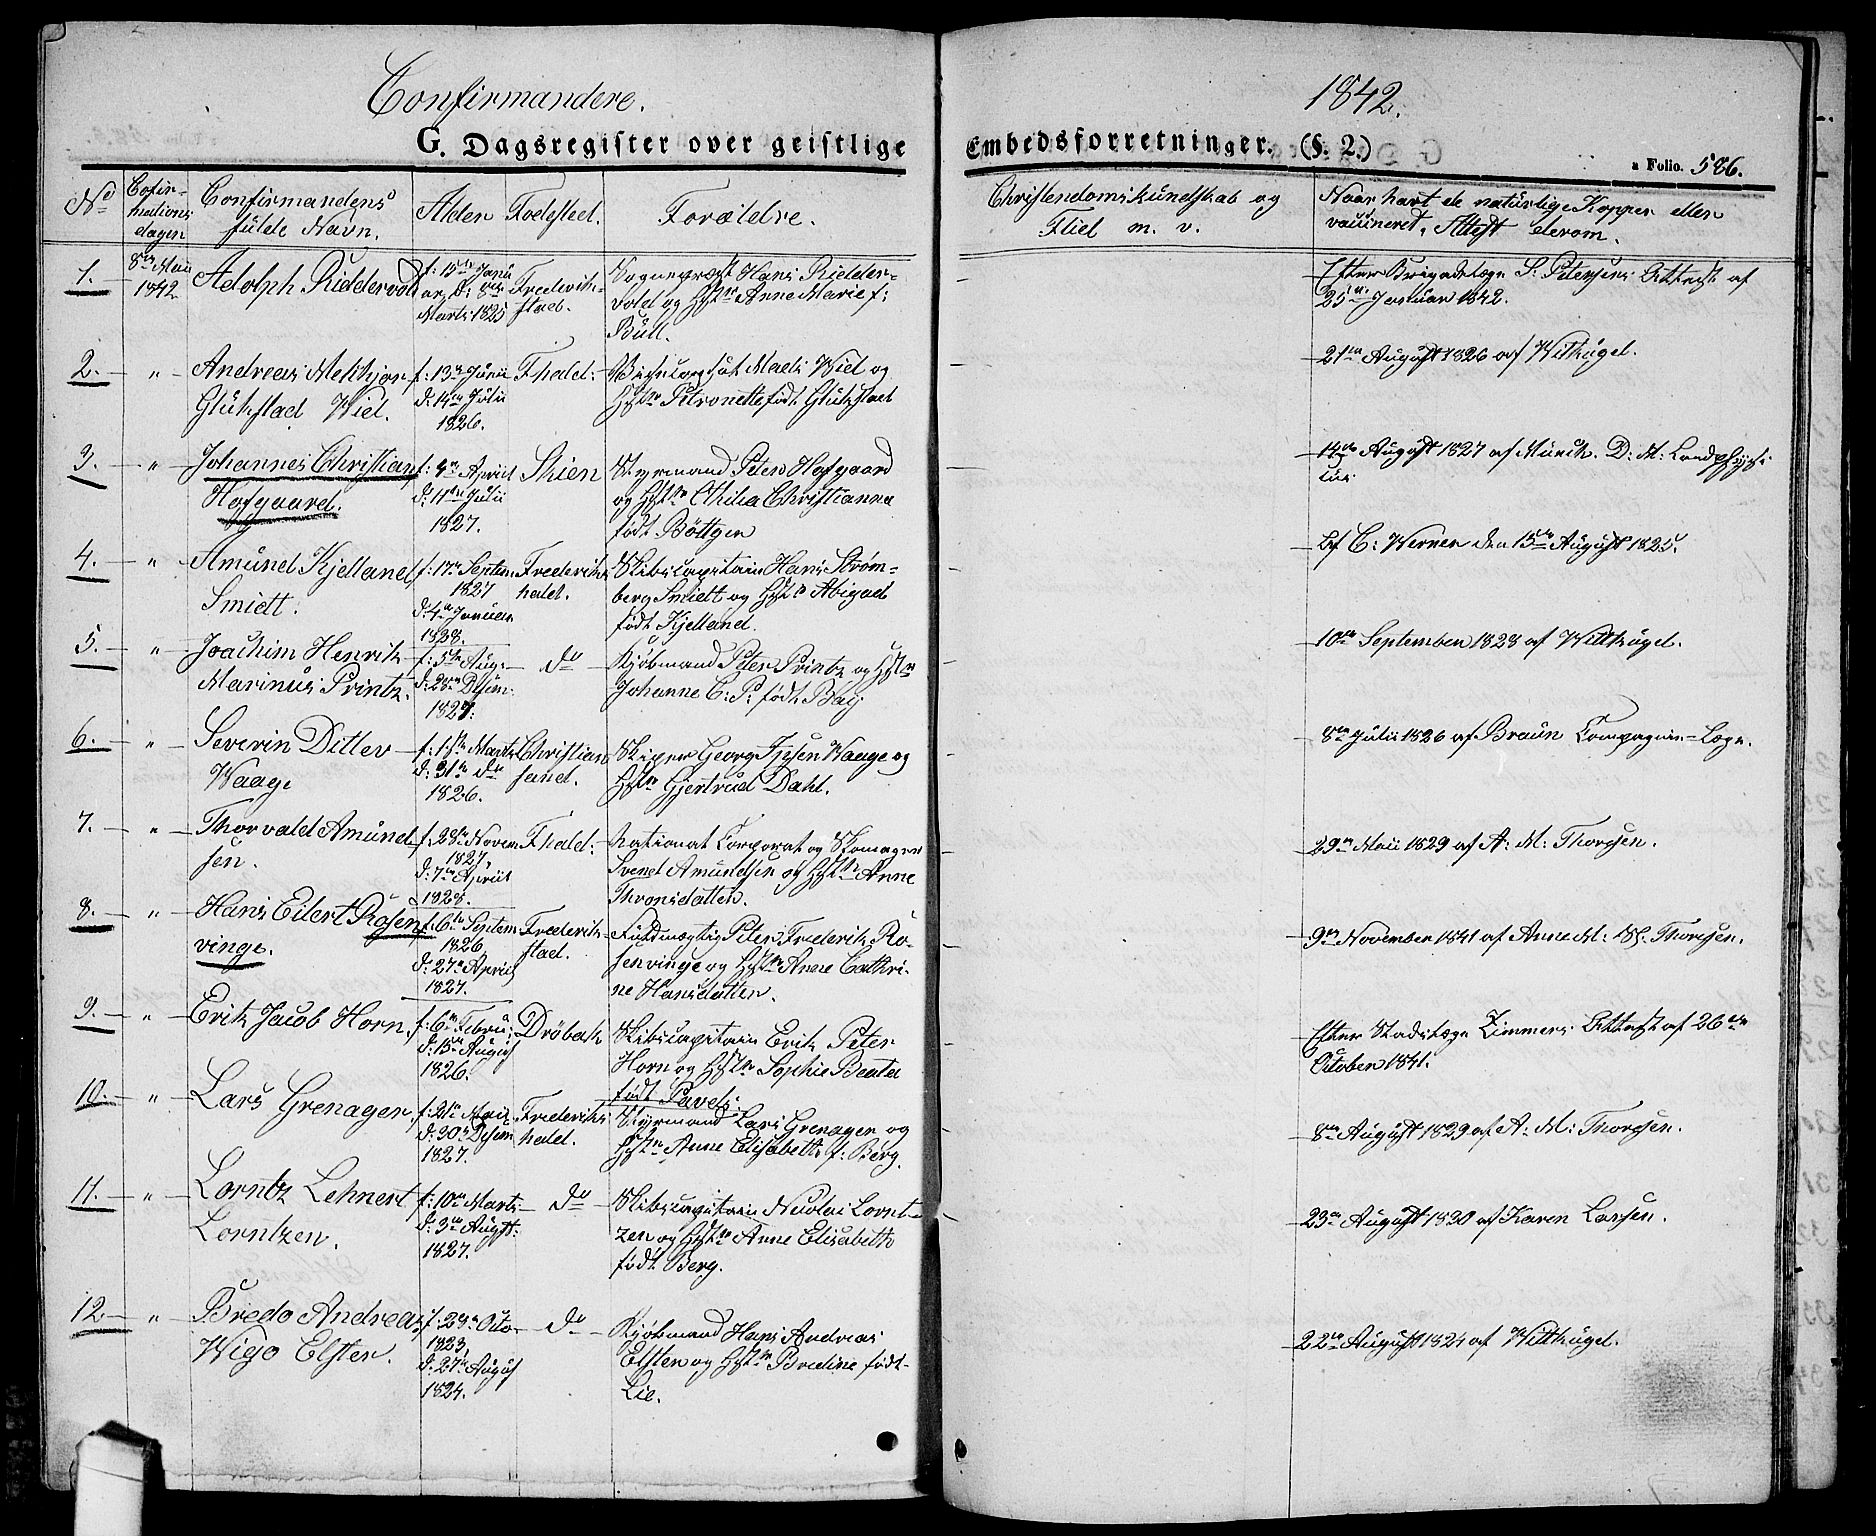 Confirmandere.
1842.
G. Dagsregister over geistlige
Embedsforretninger. (§. 2.)
a Folio. 586.
No
Cofir-
mations
dagen
Confirmandens
fulde Navn.
Alder
Fødested.
Forældre.
Christendomskundskab og
Flid m. v.
Naar havt de naturlige Kopper eller
vaccineret, Attest derom.
1.
8de Maii
1842
Adolph Riddervold
f: 15de Janu
ar, d: 8de
Marts 1825
Frederik-
stad.
Sognepræst Hans Ridder-
vold og Hstr Anne Marie f:
Bull.
Efter Brigadelæge S. Petersens Attest af
25de Januar 1842.
2.
Andreas Melchior
Glükstad Wiel.
f: 13de Junii
d: 14de Julii
1826.
Fhald:
Mads Wiel og
Hstr Petronelle født Glükstad
21de August 1826 af Withügel.
3.
Johannes Christian
Hofgaard.
f: 4de April
d: 11te Julii
1827.
Skien
Styrmand Peter Hofgaard
og Hstr Othilia Christianna
født Böttger
14de August 1827 af Münch. D: M: Landphysi-
cus.
4.
Amund Kjelland
Smidt.
f: 17de Septem
1827
d: 4de Januar
1828.
Frederiks
hald.
Skibscapitain Hans Strøm-
berg Smidt og Hstr Abigael
født Kjelland.
Af C. Werner den 15de August 1825.
5.
Joachim Henrik
Marinus Printz.
f: 5te Aug:
d: 28de Desem:
1827:
do
Kjøbmand Peter Printz og Hstr
Johanne C. P. født Bay
10de September 1828 af Witthügel.
6.
Severin Ditlev
Waage
f: 1ste Marts
d: 31te do
1826.
Christian
sand.
Skipper Georg Ipsen Waage og
Hstr Gjertrud Dahl.
8de Julii 1826 af Braun Compagnie-Læge.
7.
Thorvald Amund
sen.
f. 28de Novem
1827
d: 7de April
1828.
Fhald:
National Corporal og Skomager
Svend Amundsen og Hstr Anne
Thronsdatter.
29de Maii 1829 af A: M: Thorsen.
8.
Hans Eilert Rosen
vinge.
f. 6te Septem
1826
d: 27de April
1827.
Frederik-
stad.
Fuldmægtig Peter Frederik Ro-
senvinge og Hstr Anne Cathri-
ne Hansdatter.
9de November 1841 af Anne M: Thorsen.
9.
Erik Jacob Horn
f: 6te Febru:
d: 15de August
1826.
Dröbak
Skibscapitain Erik Peter
Horn og Hstr Sophie Beata
født Pavels.
Efter Stadslæge Zimmers Attest af 26de
October 1841.
10.
Lars Grenager
f: 21de Maii
d: 30te Desem
1827.
Frederiks
hald.
Styrmand Lars Grenager og
Hstr Anne Elisabeth f: Berg.
8de August 1829 af A: M: Thorsen.
11.
Lorntz Lehnert
Lorntzen.
f: 10de Marts
d: 3de Augst:
1827.
do
Skibscapitain Nicolai Lornt-
zen og Hstr Anne Elisabeth
født Berg.
23de August 1830 af Karen Larsen.
12
Bredo Andreas
Wigo Elster.
f: 23de Octo
1823,
d: 27de August
1824.
do
Kjøbmand Hans Andreas
Elster og Hstr Bredine født
Lie.
22de August 1824 af Witthügel.